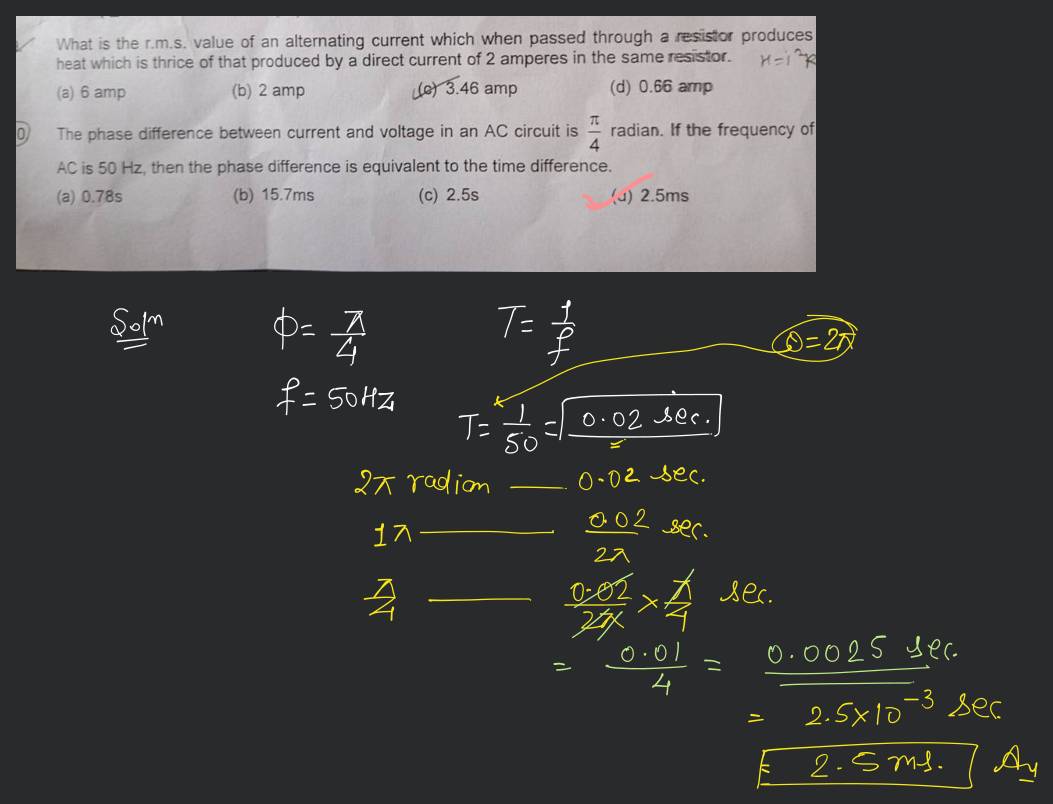 What is the r.m.s. value of an alternating current which when passed through a resistor produces
heat which is thrice of that produced by a direct current of 2 amperes in the same resistor. H=i²R
(a) 6 amp (b) 2 amp (c) 3.46 amp (d) 0.66 amp
0) The phase difference between current and voltage in an AC circuit is π/4 radian. If the frequency of
AC is 50 Hz, then the phase difference is equivalent to the time difference.
(a) 0.78s (b) 15.7ms (c) 2.5s (d) 2.5ms
Soln ϕ= π/4 T= 1/f
θ=2π
f=50Hz
T= 1/50 = 0.02 sec.
2π radian — 0.02 sec.
1π — 0.02/2π sec.
π/4 — 0.02/2π × π/4 sec.
= 0.01/4 = 0.0025 sec.
= 2.5×10⁻³ sec
= 2.5 ms.